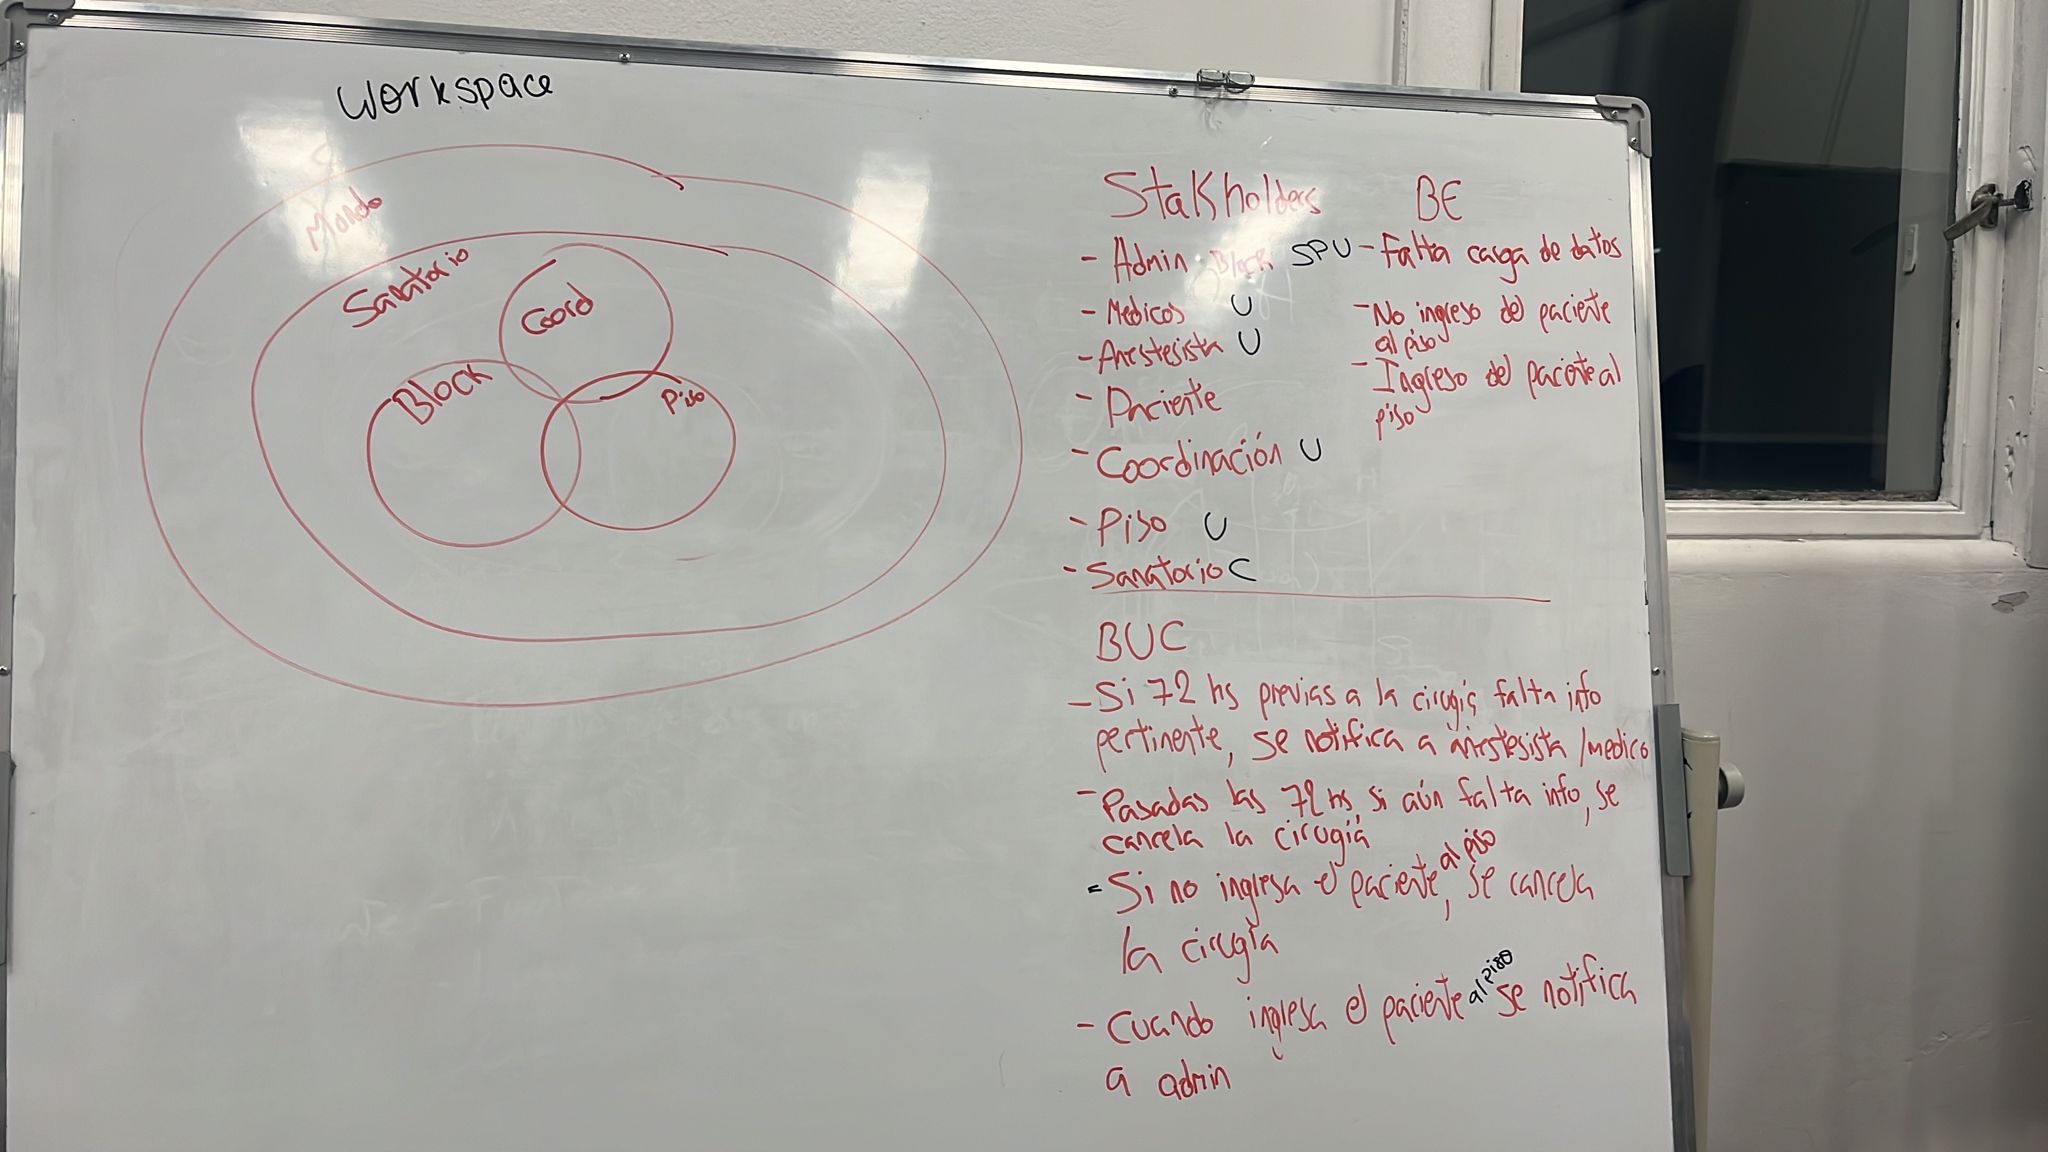 Workspace
Mondo
Sanatorio
Coord
Block
Piso
Stakholders
- Admin Block SPU
- Medicos U
- Anestesista U
- Paciente
- Coordinación U
- Piso U
- Sanatorio C
BE
- Falta carga de datos
- No ingreso del paciente
al piso
- Ingreso del paciente al
piso
BUC
- Si 72 hs previas a la cirugía falta info
pertinente, se notifica a anestesista / medico
- Pasadas las 72 hs, si aún falta info, se
cancela la cirugía
- Si no ingresa el paciente al piso, se cancela
la cirugía
- Cuando ingresa el paciente al piso se notifica
a admin